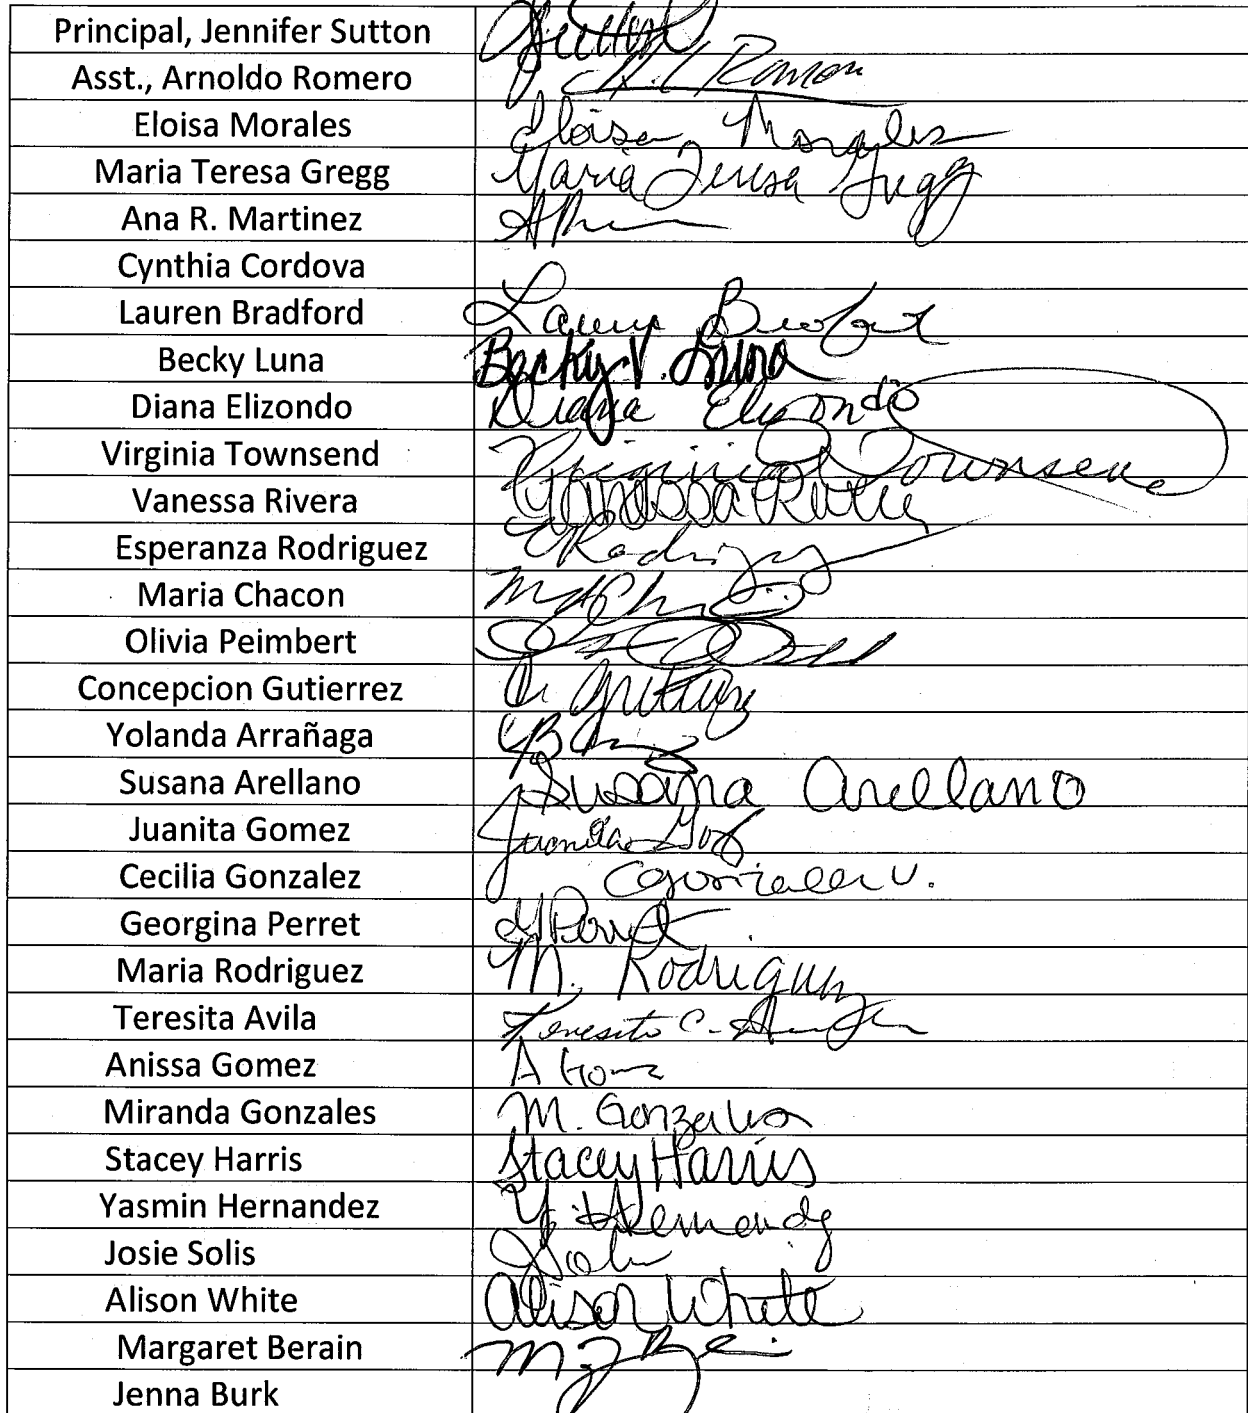 Principal, Jennifer Sutton
Asst., Arnoldo Romero
Eloisa Morales Eloisa Morales
Maria Teresa Gregg Maria Teresa Gregg
Ana R. Martinez
Cynthia Cordova
Lauren Bradford Lauren
Becky Luna Becky V. Luna
Diana Elizondo Diana Elizondo
Virginia Townsend Virginia Townsend
Vanessa Rivera Vanessa
Esperanza Rodriguez
Maria Chacon
Olivia Peimbert
Concepcion Gutierrez
Yolanda Arrañaga
Susana Arellano Susana Arellano
Juanita Gomez Juanita
Cecilia Gonzalez
Georgina Perret
Maria Rodriguez M. Rodriguez
Teresita Avila Teresita C.
Anissa Gomez
Miranda Gonzales M. Gonzales
Stacey Harris Stacey Harris
Yasmin Hernandez Y. Hernandez
Josie Solis
Alison White Alison White
Margaret Berain
Jenna Burk